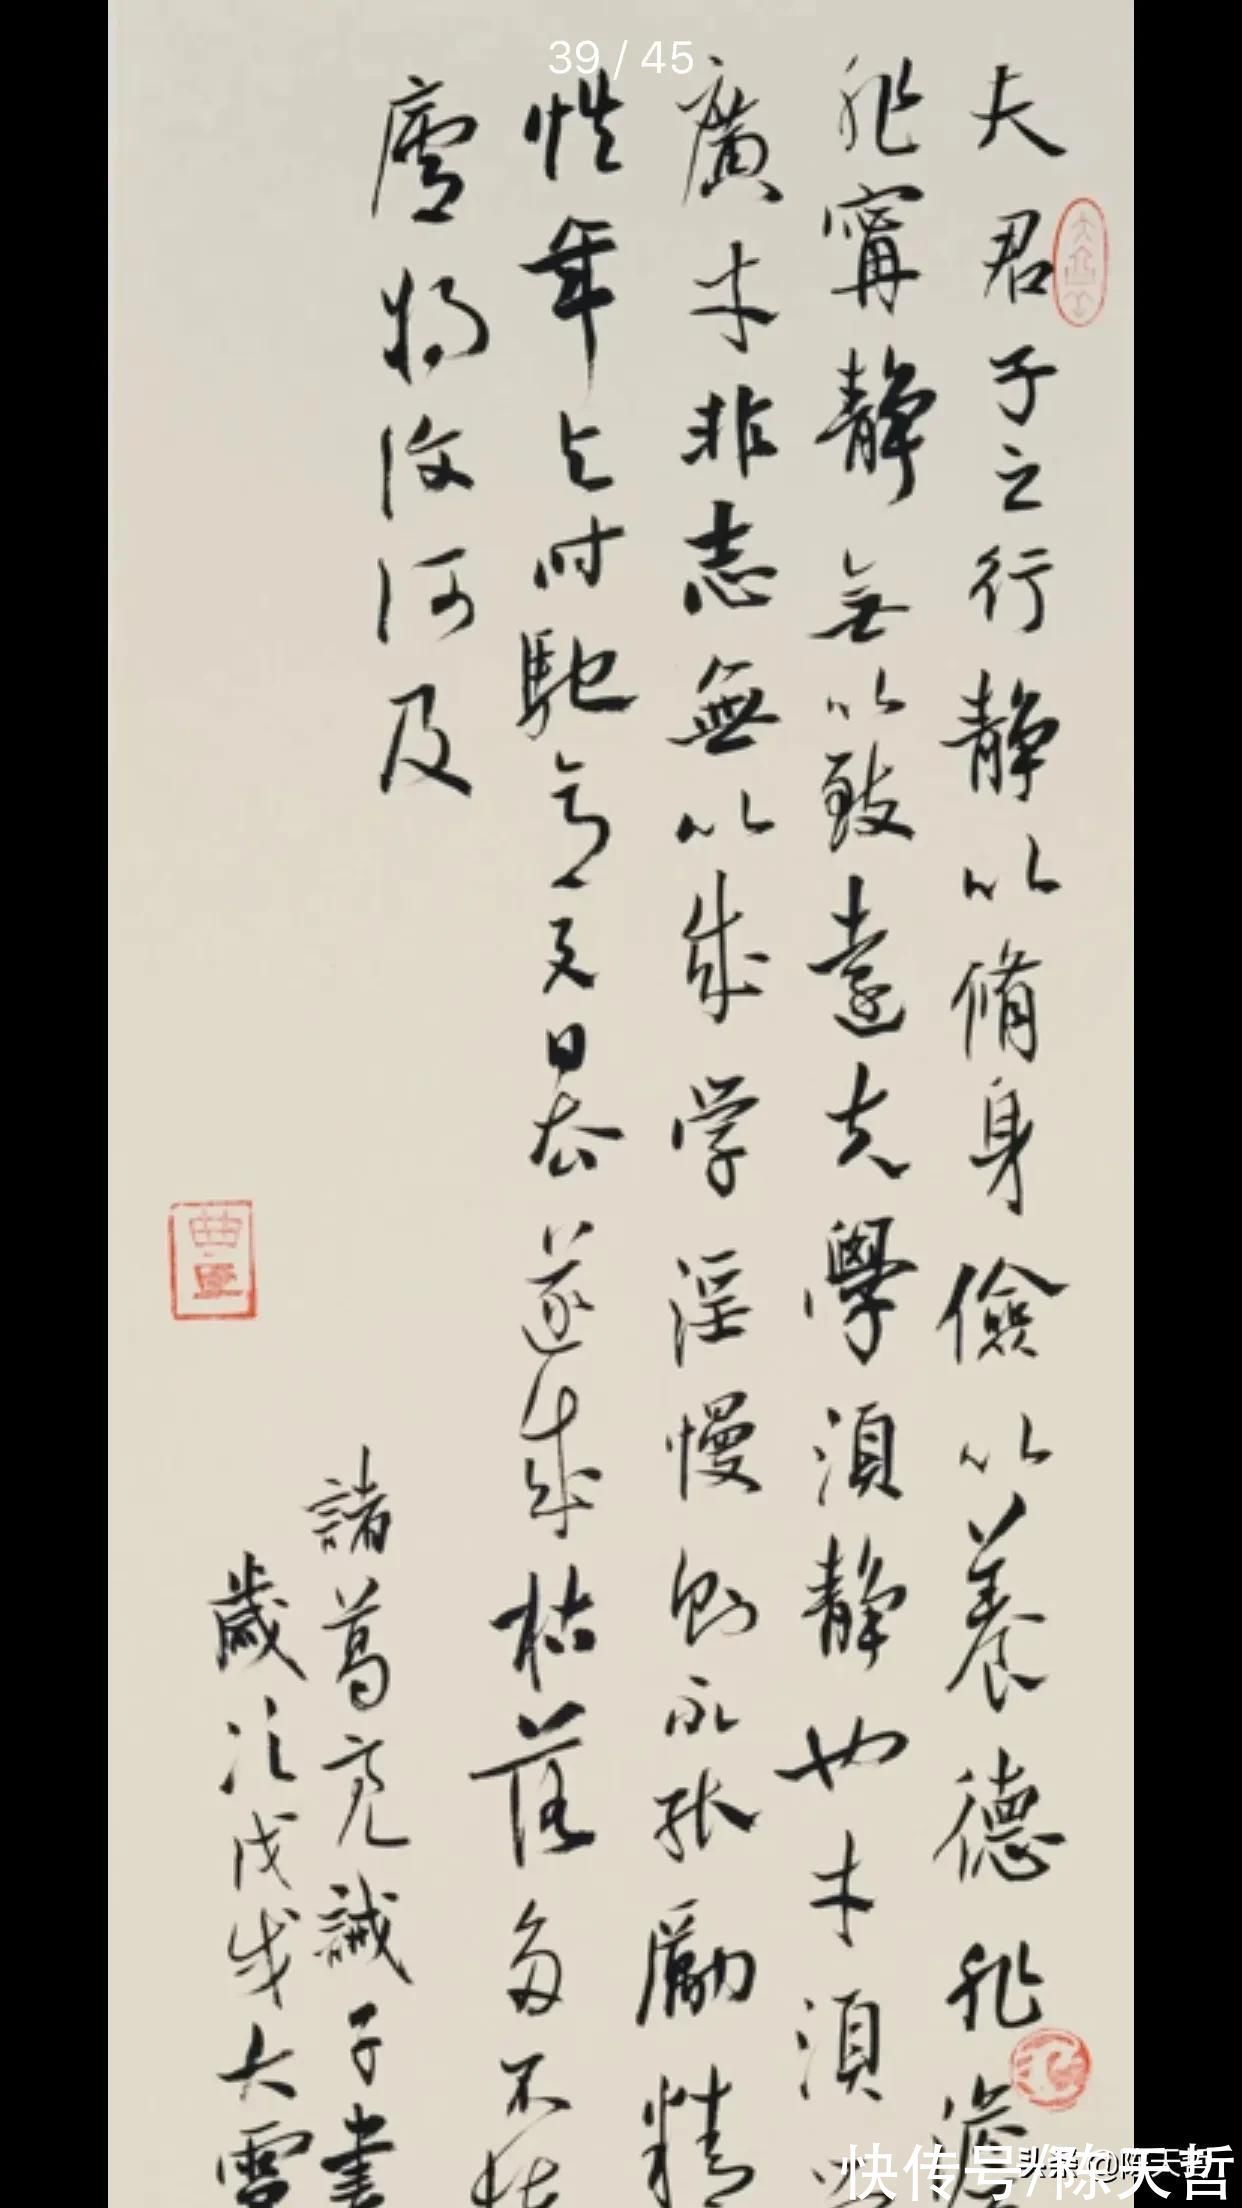 39 / 45
夫君子之行静以脩身儉以養德非澹
非寧静無以致遠夫學須静也才須
廣才非志無以成学淫慢則不能勵精
性年与时馳意与日去遂成枯落多不
廬将復何及
諸葛亮誡子書
歲次戊戌大雪
快传号/陈天哲